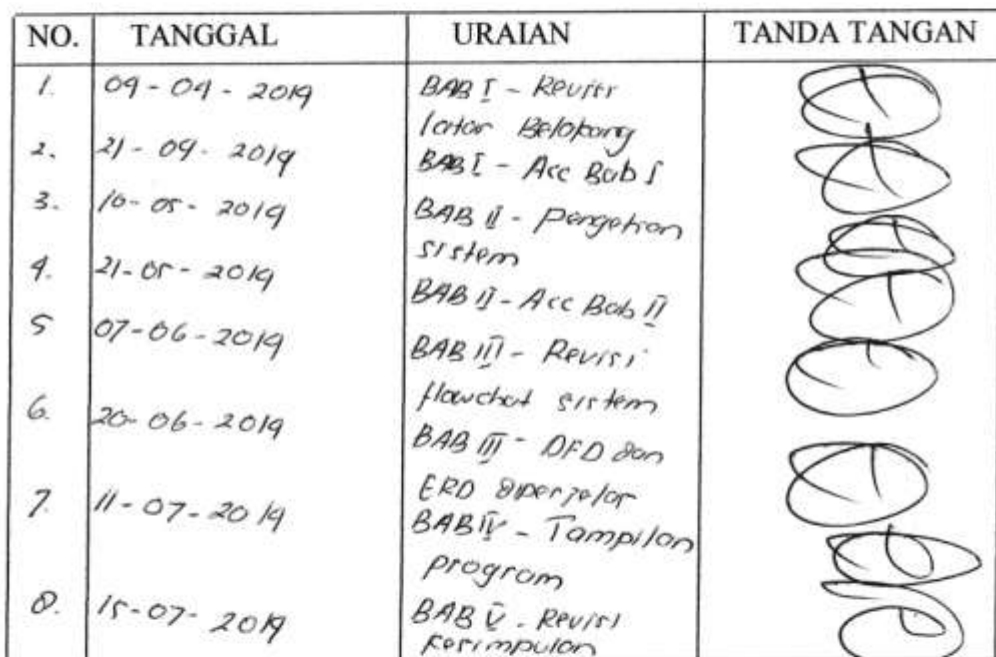 NO. TANGGAL URAIAN TANDA TANGAN
1. 09-04-2019 BAB I - Revisi
latar Belakang
2. 21-04-2019 BAB I - Acc Bab I
3. 10-05-2019 BAB II - Pengetian
sistem
4. 21-05-2019 BAB II - Acc Bab II
5 07-06-2019 BAB III - Revisi
flowchat sistem
6. 20-06-2019 BAB III - DFD dan
ERD diperjelas
7. 11-07-2019 BAB IV - Tampilan
program
8. 15-07-2019 BAB V - Revisi
kesimpulan